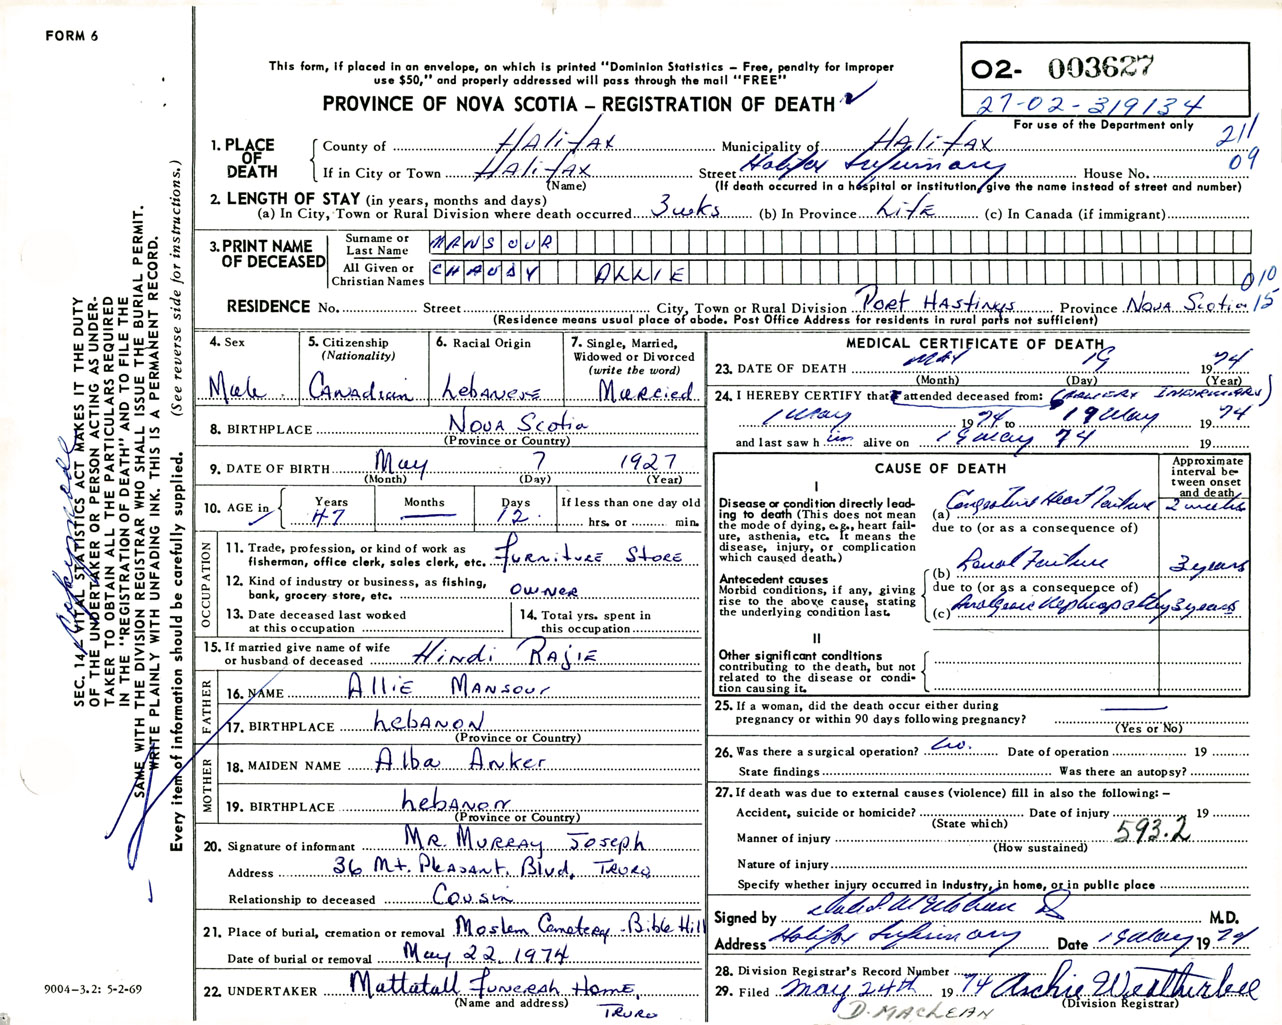 FORM 6
This form, if placed in an envelope, on which is printed "Dominion Statistics – Free, penalty for improper
use $50," and properly addressed will pass through the mail "FREE"
PROVINCE OF NOVA SCOTIA – REGISTRATION OF DEATH
02- 003627
27-02-319134
For use of the Department only
211
09
1. PLACE OF DEATH
County of Halifax Municipality of Halifax
If in City or Town Halifax Street Halifax Infirmary House No.
(Name) (If death occurred in a hospital or institution, give the name instead of street and number)
2. LENGTH OF STAY (in years, months and days)
(a) In City, Town or Rural Division where death occurred 3 wks (b) In Province Life (c) In Canada (if immigrant)
3. PRINT NAME OF DECEASED
Surname or Last Name MANSOUR
All Given or Christian Names CHAUDY ALLIE
010
15
RESIDENCE No. Street City, Town or Rural Division Port Hastings Province Nova Scotia
(Residence means usual place of abode. Post Office Address for residents in rural parts not sufficient)
4. Sex
Male
5. Citizenship
(Nationality)
Canadian
6. Racial Origin
Lebanese
7. Single, Married,
Widowed or Divorced
(write the word)
Married
8. BIRTHPLACE Nova Scotia
(Province or Country)
9. DATE OF BIRTH May 7 1927
(Month) (Day) (Year)
10. AGE in
Years 47
Months —
Days 12
If less than one day old
hrs. or min.
OCCUPATION
11. Trade, profession, or kind of work as
fisherman, office clerk, sales clerk, etc. Furniture Store
12. Kind of industry or business, as fishing,
bank, grocery store, etc. Owner
13. Date deceased last worked
at this occupation
14. Total yrs. spent in
this occupation
15. If married give name of wife
or husband of deceased Hindi Rajie
FATHER
16. NAME Allie Mansour
17. BIRTHPLACE Lebanon
(Province or Country)
MOTHER
18. MAIDEN NAME Alba Anker
19. BIRTHPLACE Lebanon
(Province or Country)
20. Signature of informant Mr. Murray Joseph
Address 36 Mt. Pleasant Blvd, Truro
Relationship to deceased Cousin
21. Place of burial, cremation or removal Moslem Cemetery - Bible Hill
Date of burial or removal May 22, 1974
22. UNDERTAKER Mattatall Funeral Home,
(Name and address) Truro
MEDICAL CERTIFICATE OF DEATH
23. DATE OF DEATH May 19 1974
(Month) (Day) (Year)
24. I HEREBY CERTIFY that I attended deceased from: (Halifax Infirmary)
1 May 1974 to 19 May 1974
and last saw him alive on 19 May 74 19
CAUSE OF DEATH
Approximate
interval be-
tween onset
and death
I
Disease or condition directly lead-
ing to death (This does not mean
the mode of dying, e.g., heart fail-
ure, asthenia, etc. It means the
disease, injury, or complication
which caused death.)
(a) Congestive Heart Failure 2 weeks
due to (or as a consequence of)
Antecedent causes
Morbid conditions, if any, giving
rise to the above cause, stating
the underlying condition last.
(b) Renal Failure 3 years
due to (or as a consequence of)
(c) Analgesic Nephropathy 3 years
II
Other significant conditions
contributing to the death, but not
related to the disease or condi-
tion causing it.
25. If a woman, did the death occur either during
pregnancy or within 90 days following pregnancy? —
(Yes or No)
26. Was there a surgical operation? No. Date of operation 19
State findings Was there an autopsy?
27. If death was due to external causes (violence) fill in also the following: –
Accident, suicide or homicide? Date of injury 19
(State which)
Manner of injury 593.2
(How sustained)
Nature of injury
Specify whether injury occurred in industry, in home, or in public place
Signed by M.D.
Address Halifax Infirmary Date 19 May 1974
28. Division Registrar's Record Number
29. Filed May 24th 1974 Archie Weatherbee
(Division Registrar)
D. MacLean
SEC. 14 – VITAL STATISTICS ACT MAKES IT THE DUTY
OF THE UNDERTAKER OR PERSON ACTING AS UNDER-
TAKER TO OBTAIN ALL THE PARTICULARS REQUIRED
IN THE "REGISTRATION OF DEATH" AND TO FILE THE
SAME WITH THE DIVISION REGISTRAR WHO SHALL ISSUE THE BURIAL PERMIT.
WRITE PLAINLY WITH UNFADING INK. THIS IS A PERMANENT RECORD.
Every item of information should be carefully supplied. (See reverse side for instructions.)
9004–3.2: 5-2-69